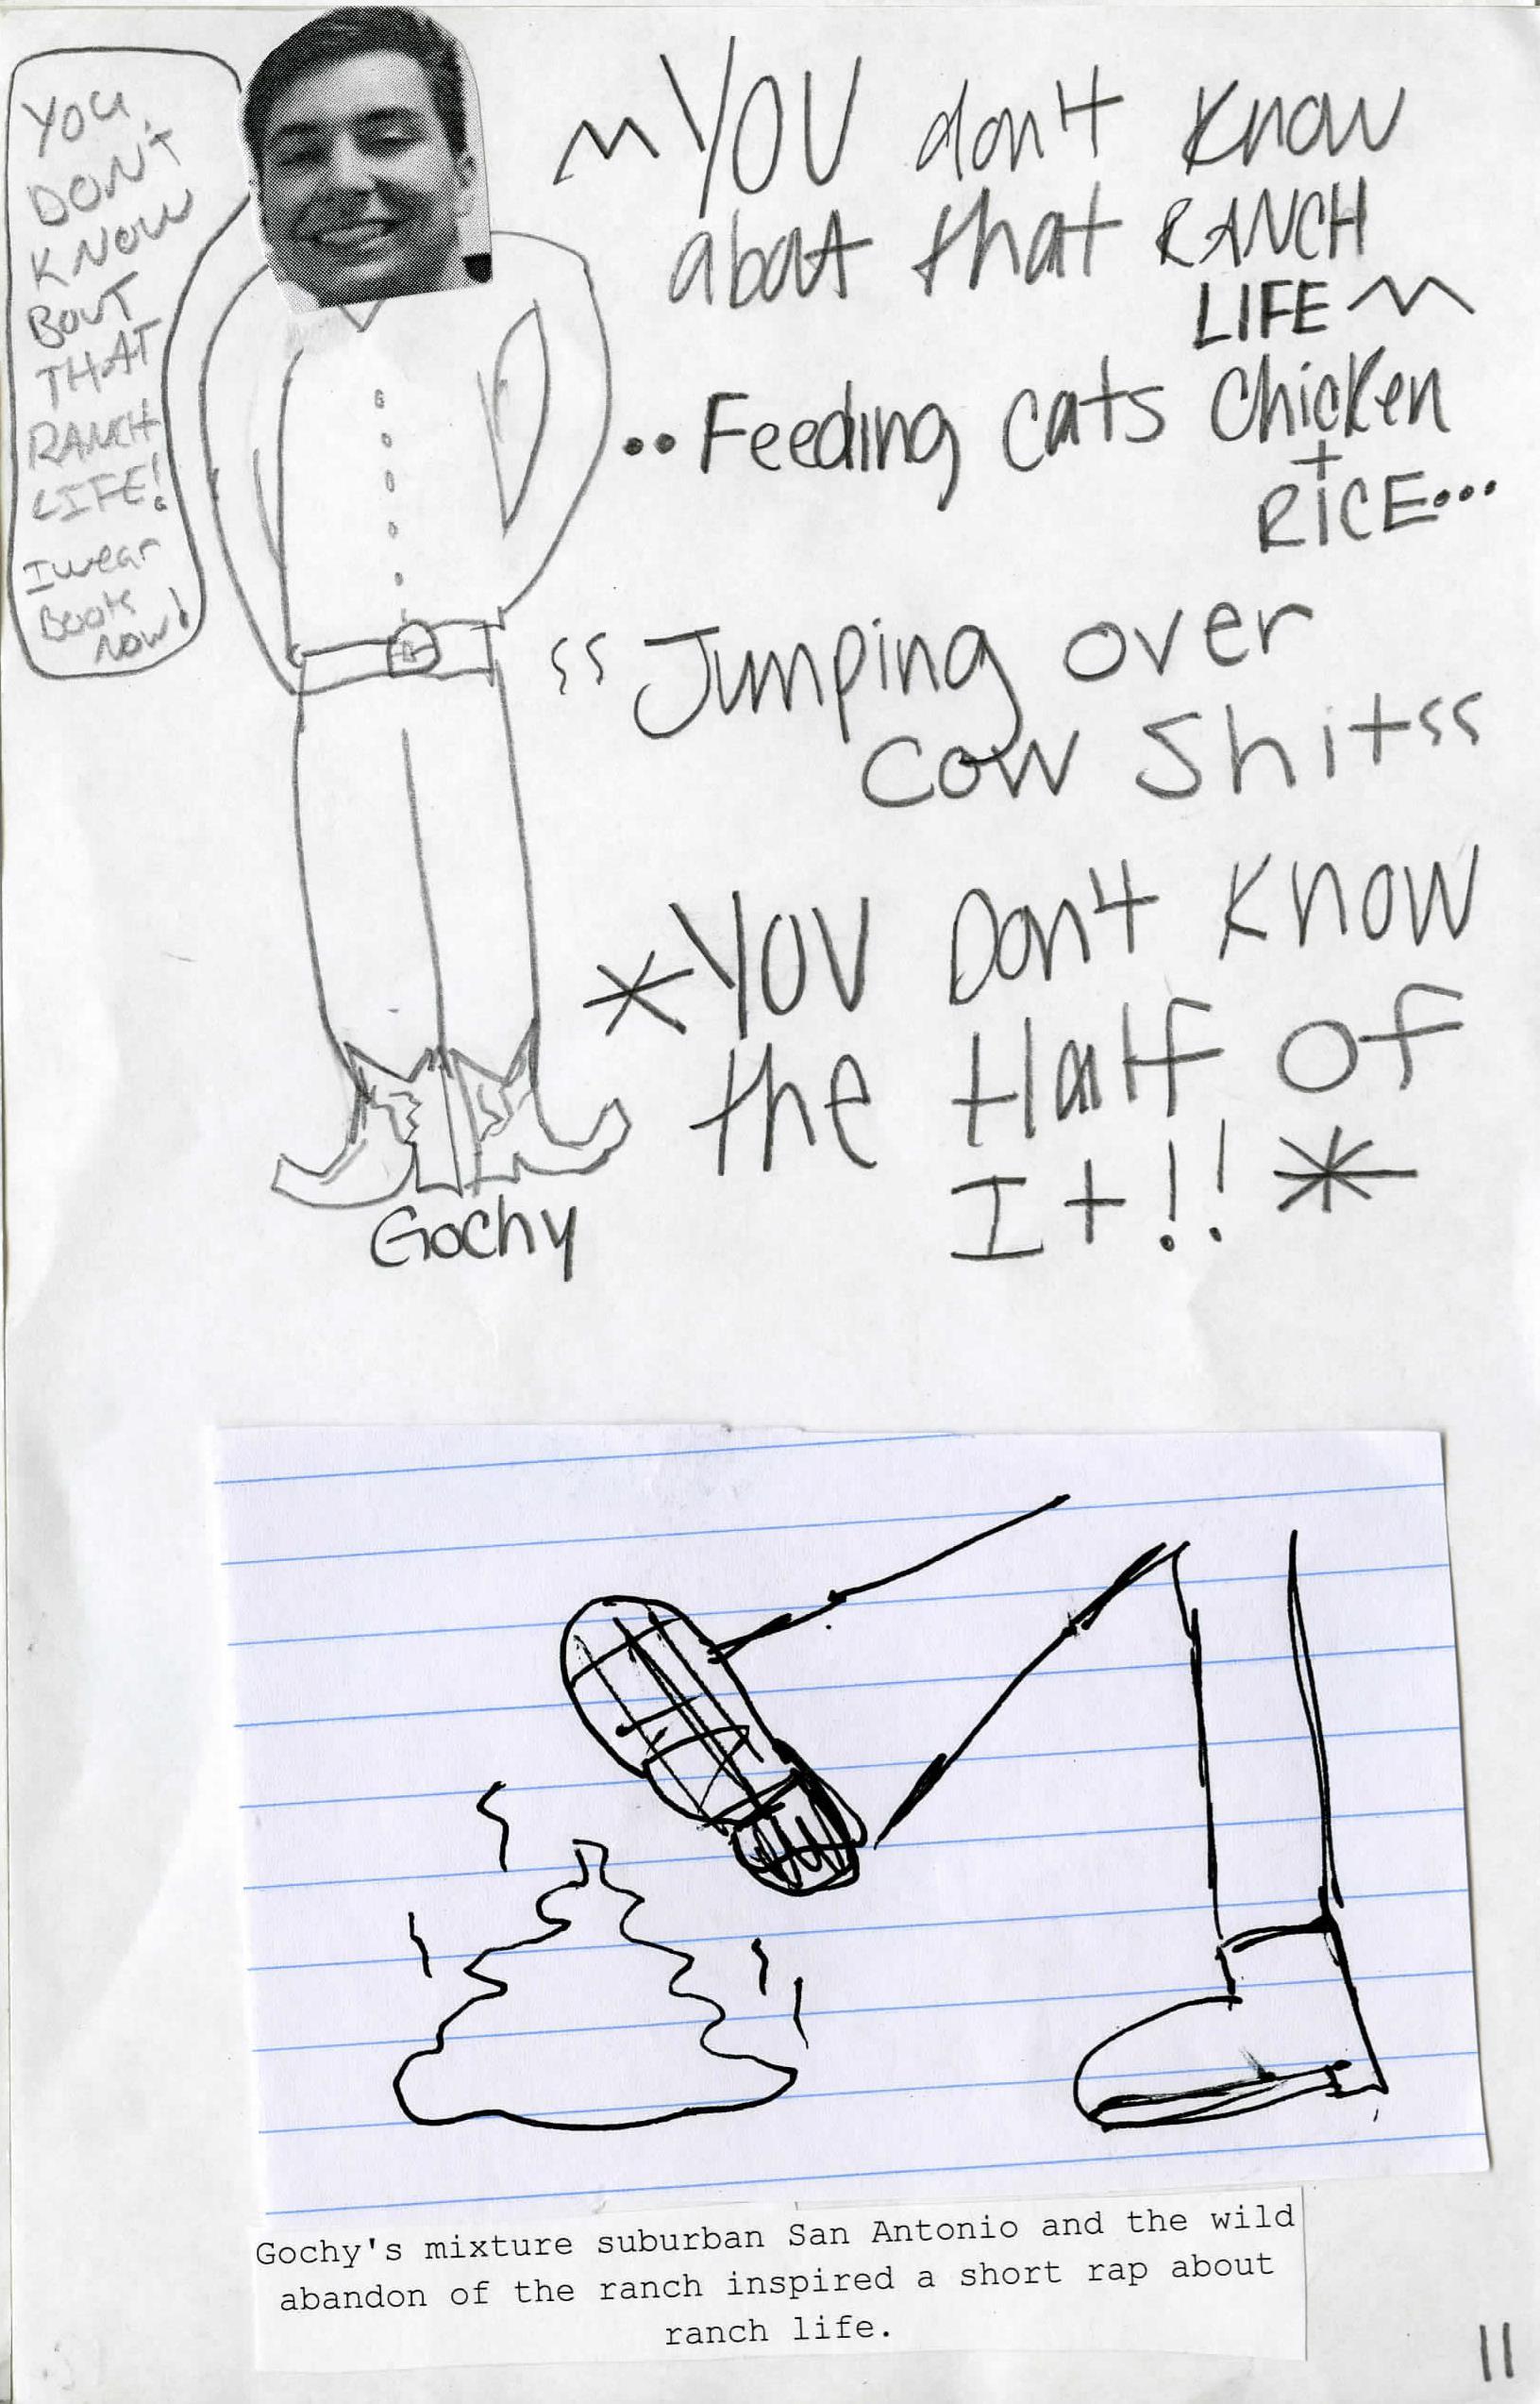 YOU
DON'T
KNOW
BOUT
THAT
RANCH
LIFE!
I wear
Boots
now!
YOU don't know
about that RANCH
LIFE
..Feeding cats chicken
+
RICE...
Jumping over
cow shit
*YOU Don't know
the Half of
It!!*
Gochy
Gochy's mixture suburban San Antonio and the wild
abandon of the ranch inspired a short rap about
ranch life.
11